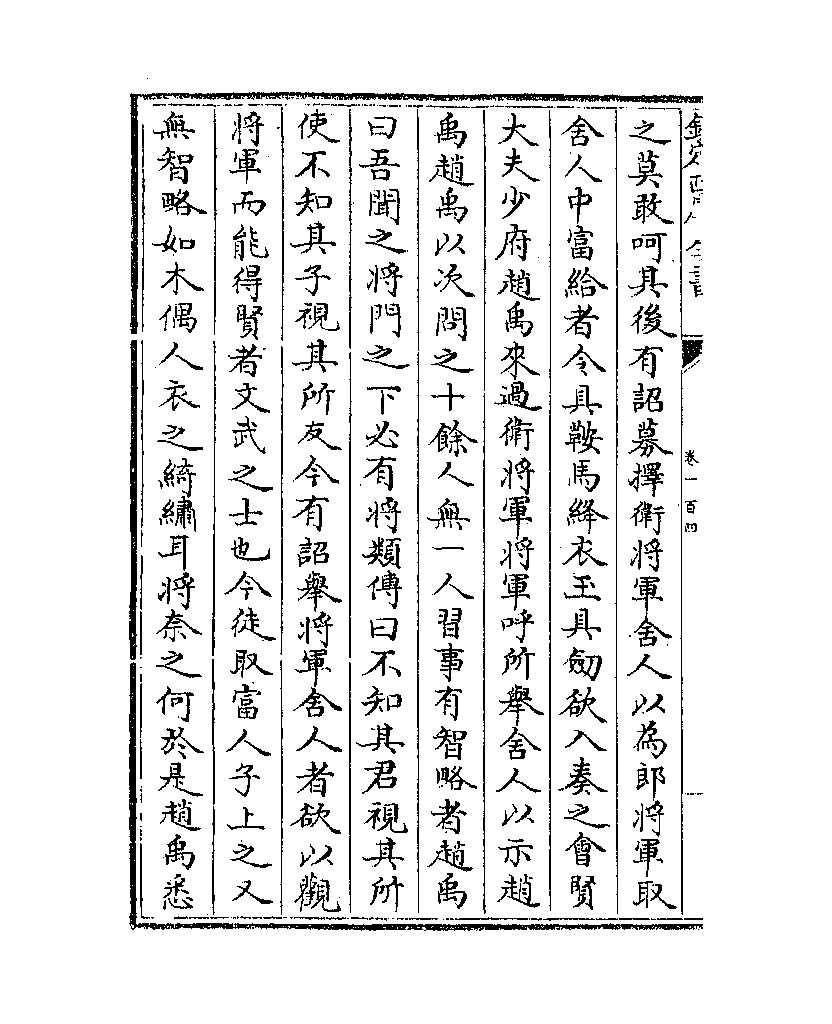 欽定四庫全書
卷一百四
之莫敢呵其後有詔募擇衛將軍舍人以為郎將軍取
舍人中富給者令具鞍馬絳衣玉具劒欲入奏之會賢
大夫少府趙禹來過衛將軍將軍呼所舉舍人以示趙
禹趙禹以次問之十餘人無一人習事有智略者趙禹
曰吾聞之將門之下必有將類傳曰不知其君視其所
使不知其子視其所友今有詔舉將軍舍人者欲以觀
將軍而能得賢者文武之士也今徒取富人子上之又
無智略如木偶人衣之綺繡耳將奈之何於是趙禹悉